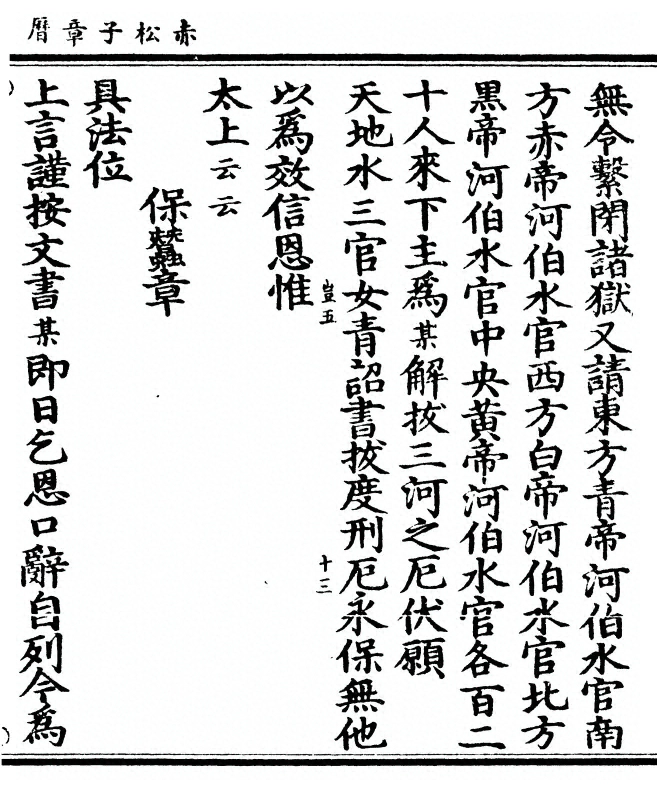 赤松子章曆
無令繫閉諸獄又請東方青帝河伯水官南
方赤帝河伯水官西方白帝河伯水官北方
黒帝河伯水官中央黄帝河伯水官各百二
十人來下主爲某解拔三河之厄伏願
天地水三官女青詔書拔度刑厄永保無他
豈五
十三
以爲效信恩惟
太上云云
保蠶章
具法位
上言謹按文書某即日乞恩口辭自列今爲